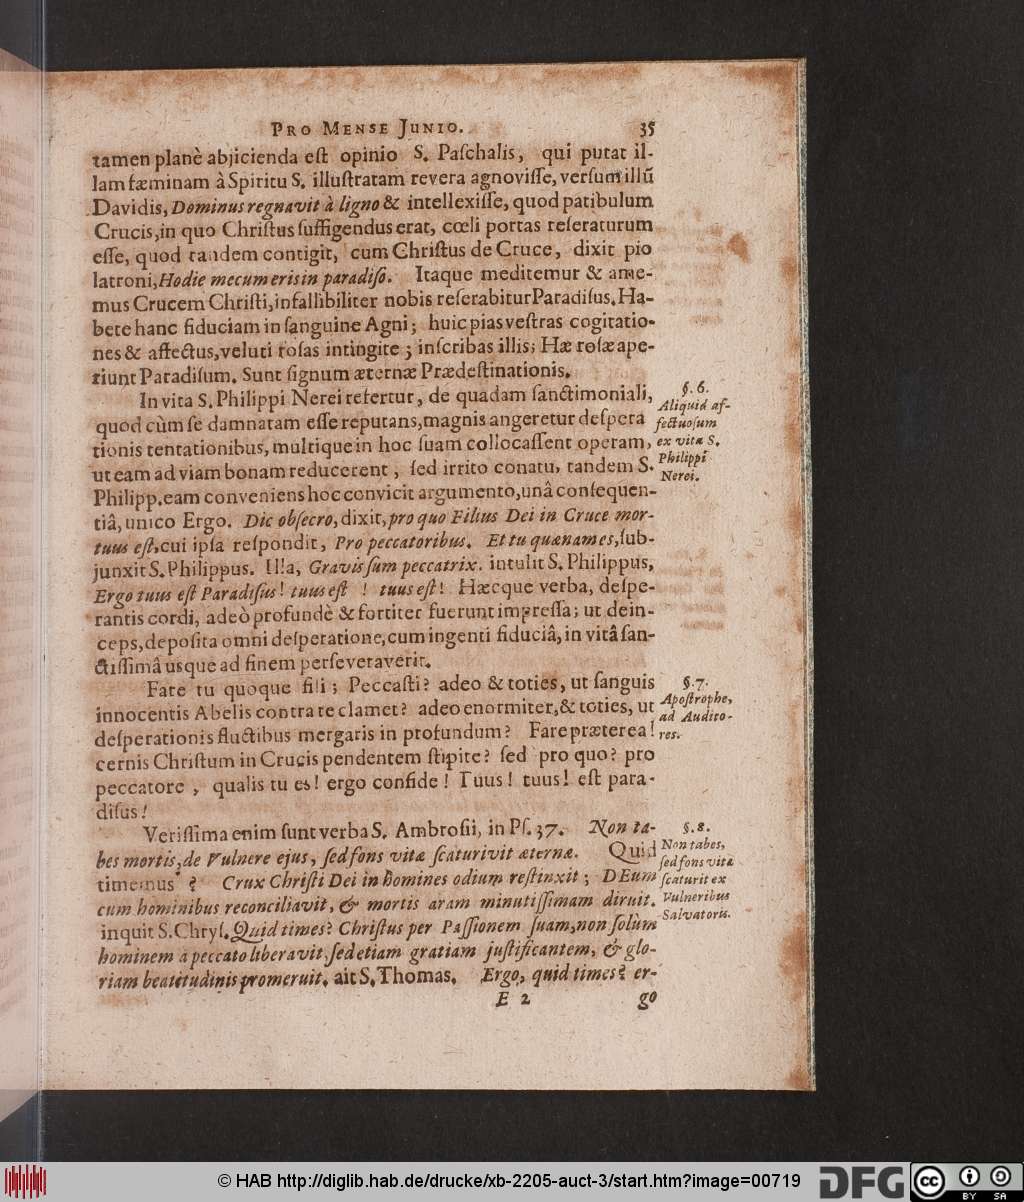 PRO MENSE JUNIO. 35
tamen planè abjicienda eſt opinio S. Paſchalis, qui putat il-
lam fæminam à Spiritu S. illuſtratam revera agnoviſſe, verſum illũ
Davidis, Dominus regnavit à ligno & intellexiſſe, quod patibulum
Crucis, in quo Chriſtus ſuffigendus erat, cœli portas reſeraturum
eſſe, quod tandem contigit, cum Chriſtus de Cruce, dixit pio
latroni, Hodie mecum eris in paradiſo. Itaque meditemur & ame-
mus Crucem Chriſti, infallibiliter nobis reſerabitur Paradiſus. Ha-
bete hanc fiduciam in ſanguine Agni; huic pias veſtras cogitatio-
nes & affectus, veluti roſas intingite; inſcribas illis; Hæ roſæ ape-
riunt Paradiſum. Sunt ſignum æternæ Prædeſtinationis.
In vita S. Philippi Nerei refertur, de quadam ſanctimoniali,
quod cùm ſe damnatam eſſe reputans, magnis angeretur deſpera
tionis tentationibus, multique in hoc ſuam collocaſſent operam,
ut eam ad viam bonam reducerent, ſed irrito conatu, tandem S.
Philipp. eam conveniens hoc convicit argumento, unâ conſequen-
tiâ, unico Ergo. Dic obſecro, dixit, pro quo Filius Dei in Cruce mor-
tuus eſt, cui ipſa reſpondit, Pro peccatoribus. Et tu quænam es, ſub-
junxit S. Philippus. Illa, Gravis ſum peccatrix. intulit S. Philippus,
Ergo tuus eſt Paradiſus! tuus eſt! tuus eſt! Hæcque verba, deſpe-
rantis cordi, adeò profundè & fortiter fuerunt impreſſa; ut dein-
ceps, depoſita omni deſperatione, cum ingenti fiduciâ, in vitâ ſan-
ctiſſimâ usque ad finem perſeveraverit.
§. 6.
Aliquid af-
fectuoſum
ex vita S.
Philippi
Nerei.
Fare tu quoque fili; Peccaſti? adeo & toties, ut ſanguis
innocentis Abelis contra te clamet? adeo enormiter, & toties, ut
deſperationis fluctibus mergaris in profundum? Fare præterea!
cernis Chriſtum in Crucis pendentem ſtipite? ſed pro quo? pro
peccatore, qualis tu es! ergo confide! Tuus! tuus! eſt para-
diſus!
§. 7.
Apoſtrophe,
ad Audito-
res.
Veriſſima enim ſunt verba S. Ambroſii, in Pſ. 37. Non ta-
bes mortis, de Vulnere ejus, ſed fons vitæ ſcaturivit æternæ. Quid
timemus? Crux Chriſti Dei in homines odium reſtinxit; DEum
cum hominibus reconciliavit, & mortis aram minutiſſimam diruit.
inquit S. Chryſ. Quid times? Chriſtus per Paſſionem ſuam, non ſolùm
hominem a peccato liberavit, ſed etiam gratiam juſtificantem, & glo-
riam beatitudinis promeruit. ait S. Thomas. Ergo, quid times? er-
§. 8.
Non tabes,
ſed fons vitæ
ſcaturit ex
Vulneribus
Salvatoris.
E 2 go
© HAB http://diglib.hab.de/drucke/xb-2205-auct-3/start.htm?image=00719
DFG
cc BY SA